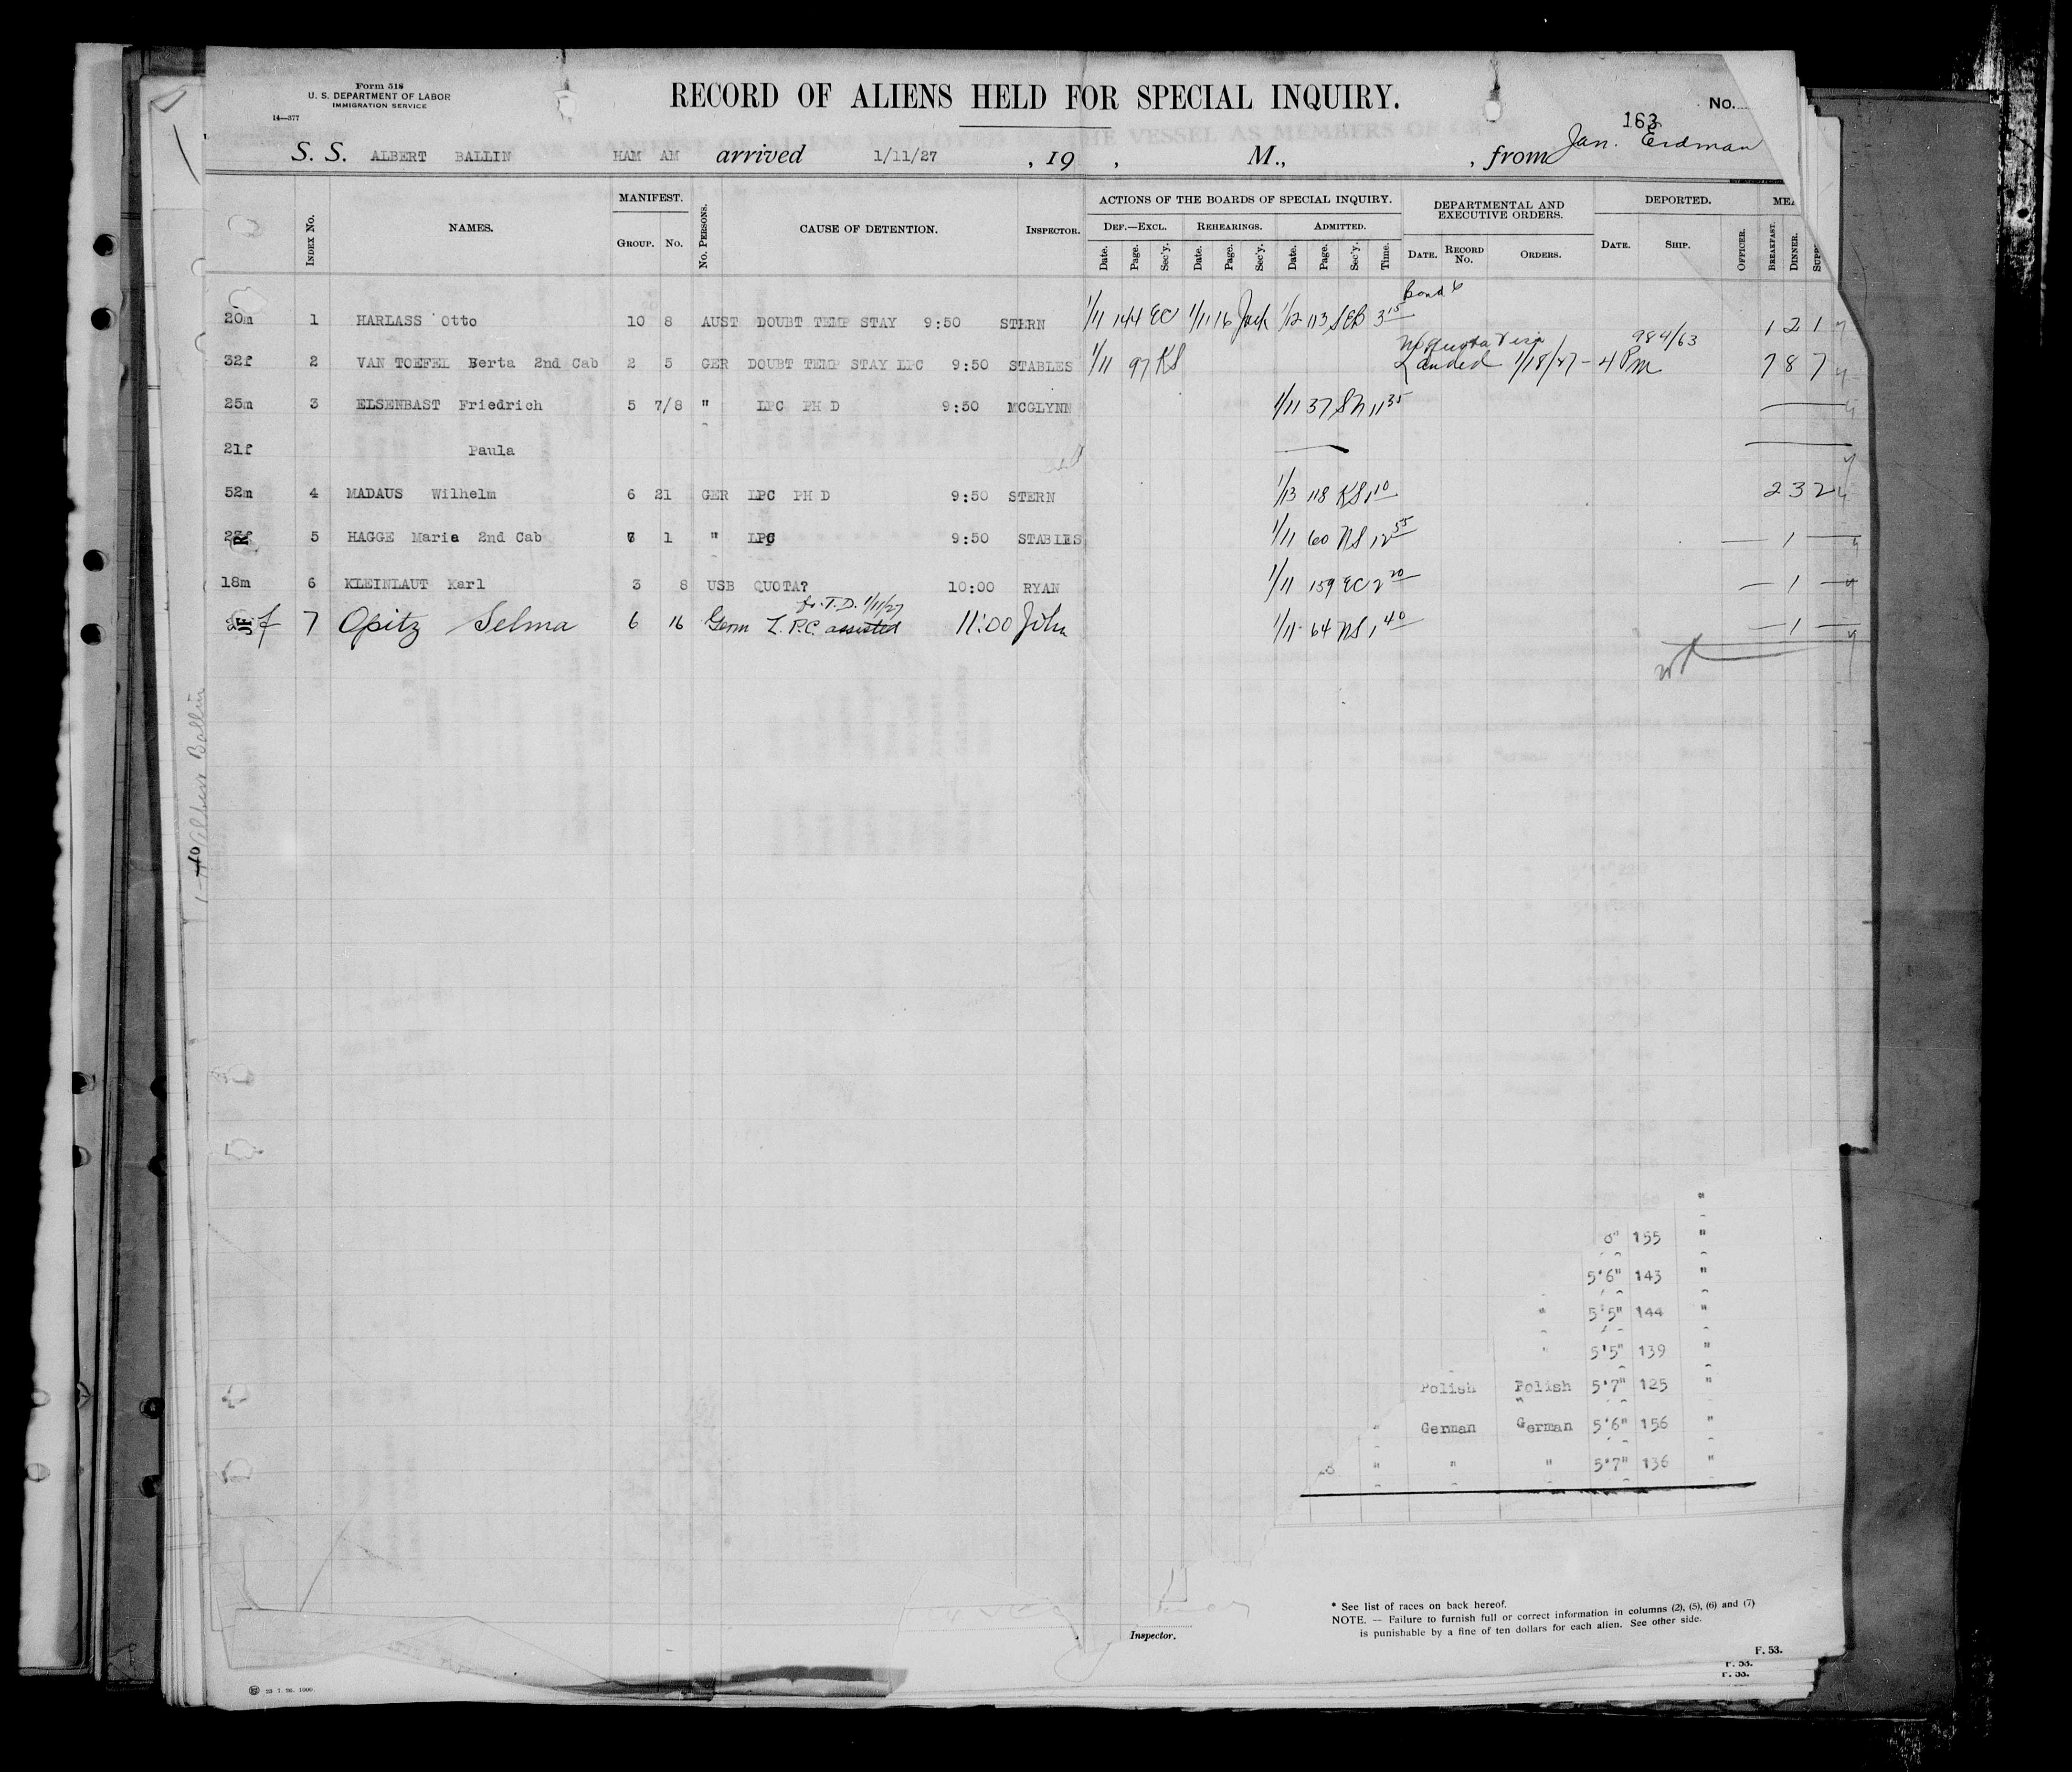 Form 518
U. S. DEPARTMENT OF LABOR
IMMIGRATION SERVICE
14—377
RECORD OF ALIENS HELD FOR SPECIAL INQUIRY.
No.
163
S. S. ALBERT BALLIN HAM AM arrived 1/11/27 , 19 , M., , from Jan. Erdman
Index No. NAMES. MANIFEST. Group. No. No. Persons. CAUSE OF DETENTION. Inspector.
ACTIONS OF THE BOARDS OF SPECIAL INQUIRY. DEPARTMENTAL AND EXECUTIVE ORDERS. DEPORTED.
Def.—Excl. Rehearings. Admitted.
Date. Page. Sec'y. Date. Page. Sec'y. Date. Page. Sec'y. Time. Date. Record No. Orders. Date. Ship. Officer. Breakfast. Dinner.
Bond 6
20m 1 HARLASS Otto 10 8 AUST DOUBT TEMP STAY 9:50 STERN 1/11 144 EC 1/11 16 Jack 1/12 113 SEB 3 15 1 2 1
No Quota Visa 984/63
32f 2 VAN TOEFEL Berta 2nd Cab 2 5 GER DOUBT TEMP STAY LPC 9:50 STABLES 1/11 97 KS Landed 1/18/27 - 4 PM 7 8 7
25m 3 ELSENBAST Friedrich 5 7/8 " LPC PH D 9:50 MCGLYNN 1/11 37 11 35
21f Paula
52m 4 MADAUS Wilhelm 6 21 GER LPC PH D 9:50 STERN 1/13 118 KS 1 10 2 3 2
5 HAGGE Maria 2nd Cab 1 " LPC 9:50 STABLES 1/11 60 NS 12 55 — 1 —
18m 6 KLEINLAUT Karl 3 8 USB QUOTA? 10:00 RYAN 1/11 159 EC 2 20 — 1 —
T.D. 1/11/27
f 7 Opitz Selma 6 16 Germ L.P.C. assisted 11:00 John 1/11 64 NS 1 40 — 1 —
Albert Ballin
"
155 "
5'6" 143 "
" 5'5" 144 "
" 5'5" 139 "
Polish Polish 5'7" 125 "
" German German 5'6" 156 "
" " " 5'7" 136 "
* See list of races on back hereof.
NOTE. — Failure to furnish full or correct information in columns (2), (5), (6) and (7)
is punishable by a fine of ten dollars for each alien. See other side.
Inspector.
F. 53.
F. 53.
F. 53.
23 7. 26. 1000.